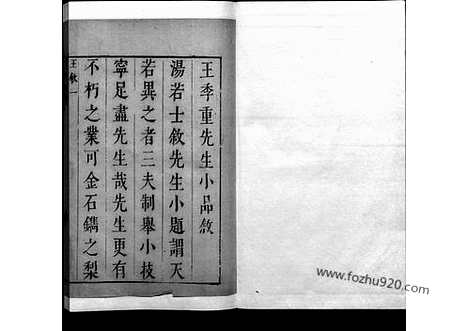 王季重先生小品敘
湯若士敘先生小題謂天
若異之者三夫制舉小技
寧足盡先生哉先生更有
不朽之業可金石鐫之梨
王敘 一
www.fozhu920.com